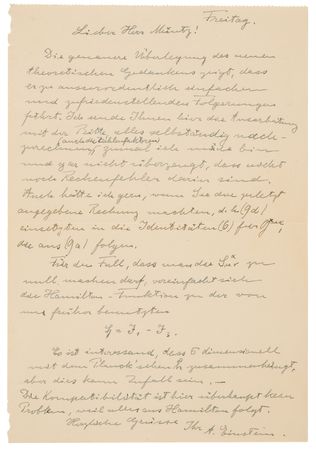 Freitag.
Lieber Herr Müntz!
Die genauere Überlegung des neuen
theoretischen Gedankens zeigt, dass
er zu ausserordentlich einfachen
und zufriedenstellenden Folgerungen
führt. Ich sende Ihnen hier die Ausarbeitung
mit der Bitte, alles selbständig nach-
(auch die Zahlenfaktoren)
zurechnen, zumal ich müde bin
und gar nicht überzeugt, dass nicht
noch Rechenfehler darin sind.
Auch hätte ich gern, wenn Sie die zuletzt
angegebene Rechnung machten, d. h. (9d)
einsetzten in die Identitäten (6) für
die aus (9a) folgen.
Für den Fall, dass man die zu
null machen darf, vereinfacht sich
die Hamilton-Funktion zu der von
uns früher benutzten
Es ist interessant, dass 5 dimensionell
mit dem Planck'schen h zusammenhängt,
aber dies kann Zufall sein. –
Die Kompatibilität ist hier überhaupt kein
Problem, weil alles aus Hamilton folgt.
Herzliche Grüsse Ihr A. Einstein.